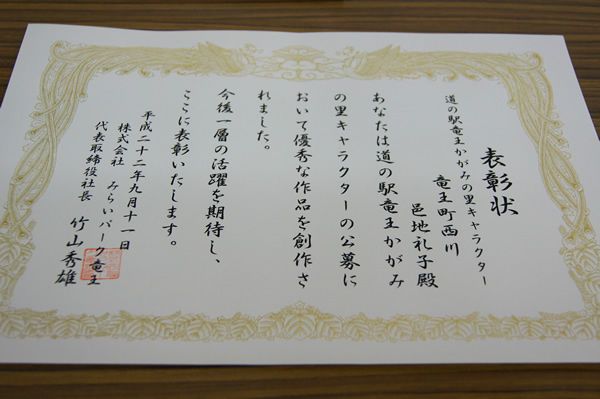 表彰状
道の駅竜王かがみの里キャラクター
竜王町西川
邑地礼子殿
あなたは道の駅竜王かがみ
の里キャラクターの公募に
おいて優秀な作品を創作さ
れました。
今後一層の活躍を期待し、
ここに表彰いたします。
平成二十二年九月十一日
株式会社 みらいパーク竜王
代表取締役社長 竹山秀雄